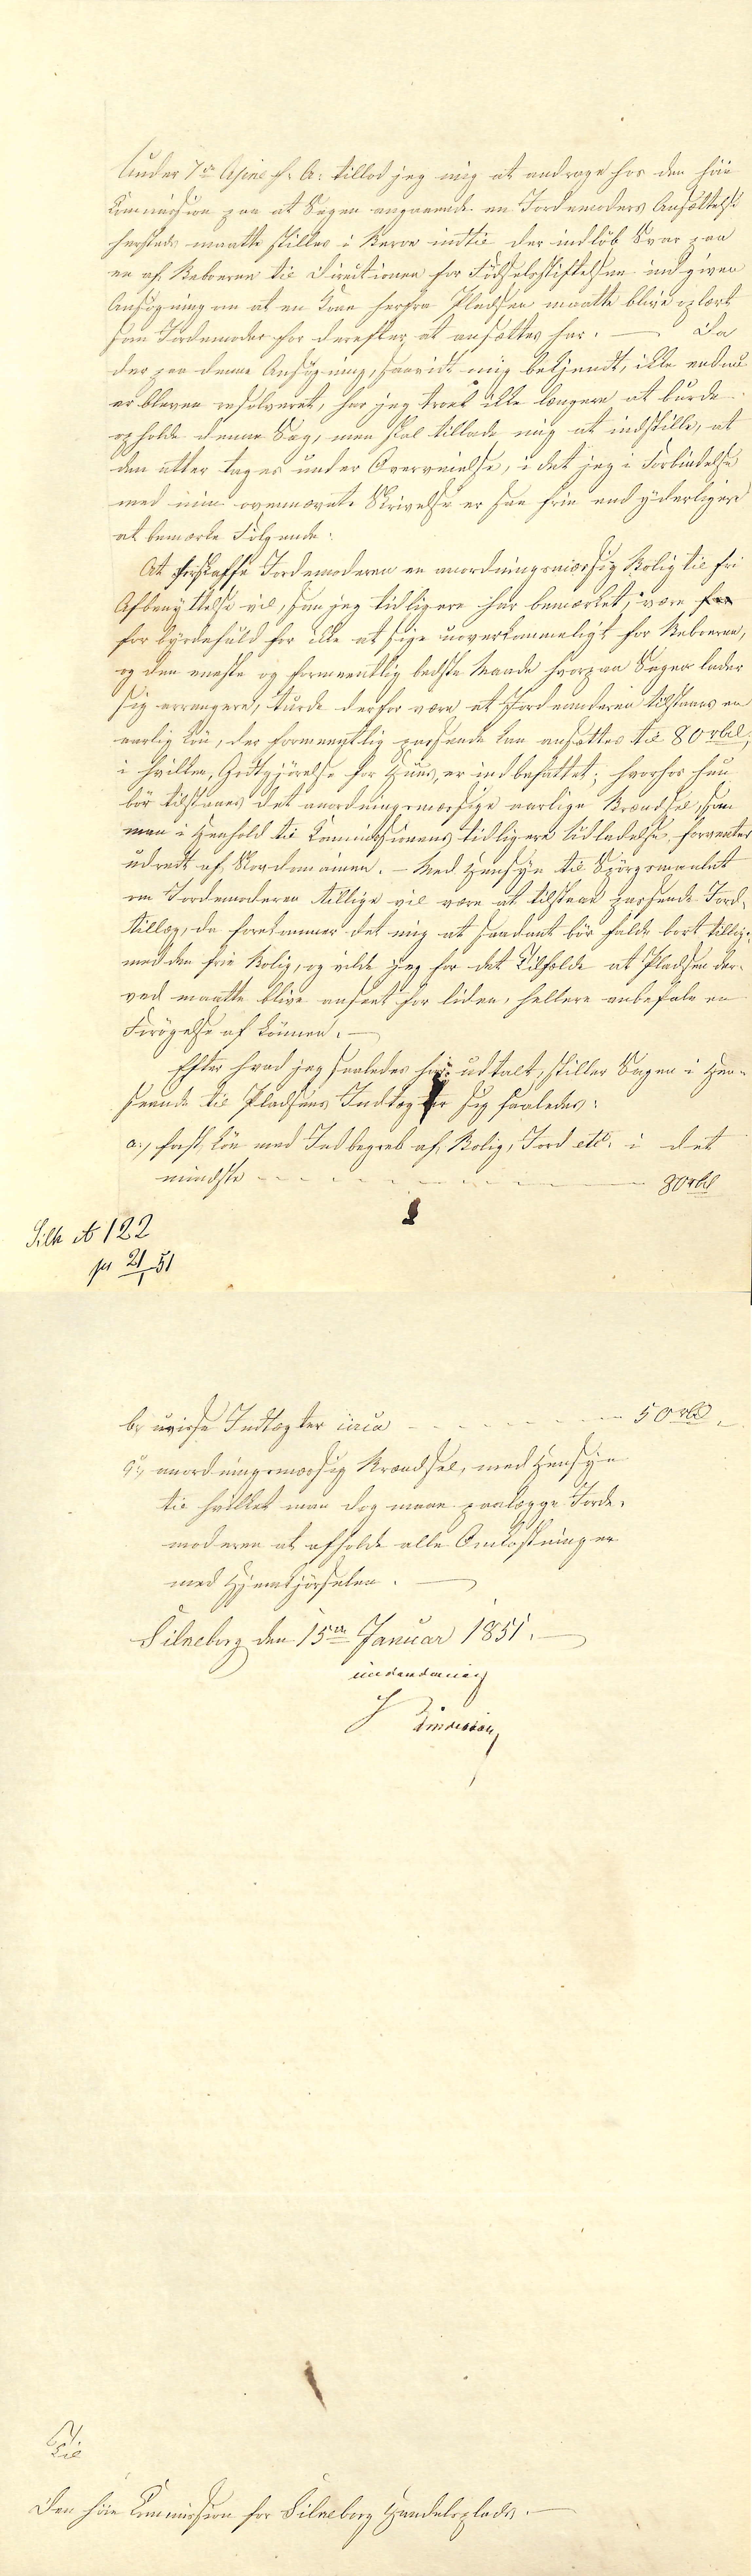 Under 7de April f: A: tillod jeg mig at andrage hos den høie
Kommission paa at Sagen angaaende en Jordemoders Ansættelse
hersteds maatte stilles i Beroe indtil der indløb Svar paa
en af Beboerne til Directionen for Fødselsstiftelsen indgiven
Ansøgning om at en Kone herfra Pladsen maatte blive oplært
som Jordemoder for derefter at ansættes her. — Da
der paa denne Ansøgning, saavidt mig bekjendt, ikke endnu
er bleven resolveret, har jeg troet ikke længere at burde
opholde denne Sag, men skal tillade mig at indstille, at
den atter tages under Overveielse, i det jeg i Forbindelse
med min ovennævnte Skrivelse er saa frie end yderligere
at bemærke Følgende:
At forskaffe Jordemoderen en anordningsmæssig Bolig til fri
Afbenyttelse vil, som jeg tidligere har bemærket, være
for byrdefuld for ikke at sige uoverkommeligt for Beboerne,
og den eneste og formeentlig bedste Maade hvorpaa Sagen lader
sig arrangere, turde derfor være at Jordemoderen tilstaaes en
aarlig Løn, der formeentlig passende kan ansættes til 80 rbd,
i hvilken Godtgjørelse for Huus, er indbefattet; hvorhos hun
bør tilstaaes det anordningsmæssige aarlige Brændsel, som
man i Henhold til Kommissionens tidligere Udladelse, forventer
udredt af Skovdomainen. — Med Hensyn til Spørgsmaalet
om Jordemoderen tillige vil være at tilstaae passende Jord-
tillæg, da forekommer det mig at saadant bør falde bort tillige
med den frie Bolig, og vilde jeg for det Tilfælde at Pladsen der-
ved maatte blive anseet for liden, hellere anbefale en
Forøgelse af Lønnen. —
Efter hvad jeg saaledes har udtalt, stiller Sagen i Hen-
seende til Pladsens Indtægter sig saaledes:
a., fast Løn med Indbegreb af Bolig, Jord etc. i det
mindste — — — 80 rbd
Silk № 122
pr 21/1 51
b, uvisse Indtægter circa — — — 50 rbd, —
c., anordningsmæssig Brændsel, med Hensyn
til hvilket man dog maae paalægge Jorde-
moderen at afholde alle Omkostninger
med Hjemkjørselen. —
Silkeborg den 15de Januar 1851. —
underdanig
Til
Den høie Kommission for Silkeborg Handelsplads. —